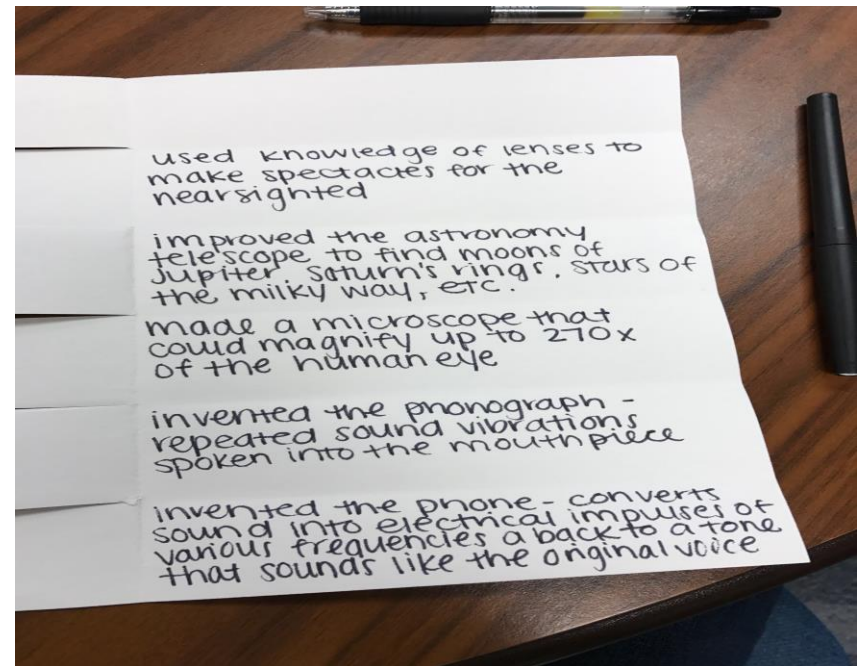 used knowledge of lenses to
make spectacles for the
nearsighted
improved the astronomy
telescope to find moons of
jupiter, saturn's rings, stars of
the milky way, etc.
made a microscope that
could magnify up to 270x
of the human eye
invented the phonograph -
repeated sound vibrations
spoken into the mouthpiece
invented the phone - converts
sound into electrical impulses of
various frequencies a back to a tone
that sounds like the original voice